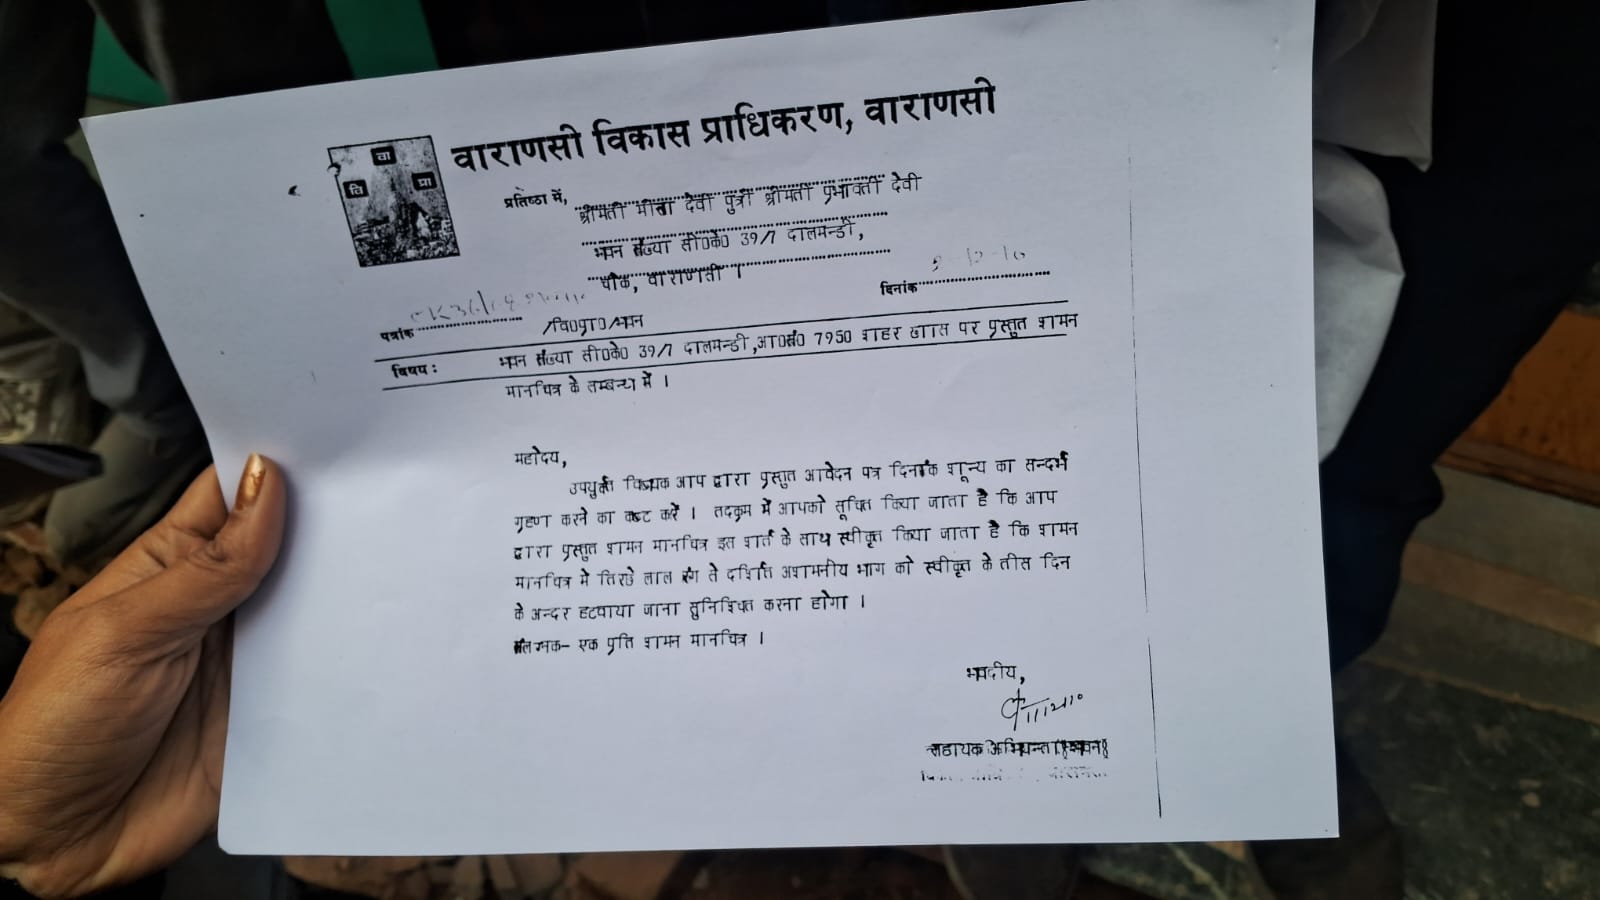 वाराणसी विकास प्राधिकरण, वाराणसी
वा
वि प्रा
प्रतिष्ठा में,
श्रीमती मीना देवी पुत्री श्रीमती प्रभावती देवी
भवन संख्या सी०के० 39/7 दालमन्डी,
चौक, वाराणसी ।
दिनांक
पत्रांक /वि०प्रा०/भवन
विषय : भवन संख्या सी०के० 39/7 दालमन्डी,आ०सं० 7950 शहर खास पर प्रस्तुत शमन
मानचित्र के सम्बन्ध में ।
महोदय,
उपर्युक्त विषयक आप द्वारा प्रस्तुत आवेदन पत्र दिनांक शून्य का सन्दर्भ
ग्रहण करने का कष्ट करें । तदक्रम में आपको सूचित किया जाता है कि आप
द्वारा प्रस्तुत शमन मानचित्र इस शर्त के साथ स्वीकृत किया जाता है कि शमन
मानचित्र मे तिरछे लाल रंग से दर्शित अशमनीय भाग को स्वीकृत के तीस दिन
के अन्दर हटवाया जाना सुनिश्चित करना होगा ।
संलग्नक- एक प्रति शमन मानचित्र ।
भवदीय,
सहायक अभियन्ता(भवन)